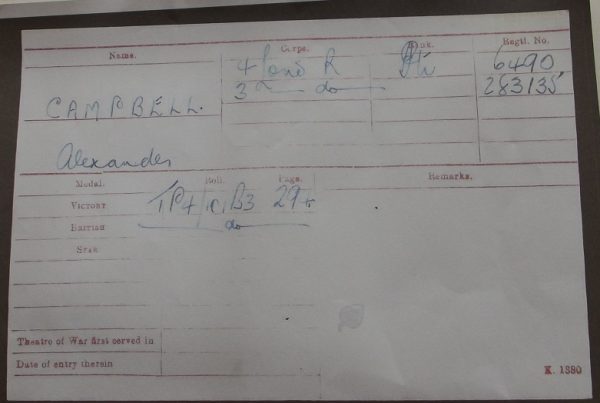 Name. Corps. Rank. Regtl. No.
4 Lond R Pte 6490
3 do 283135
CAMPBELL.
Alexander
Medal. Roll. Page. Remarks.
VICTORY TP4/101B3 294
BRITISH do
STAR
Theatre of War first served in
Date of entry therein
K. 1380